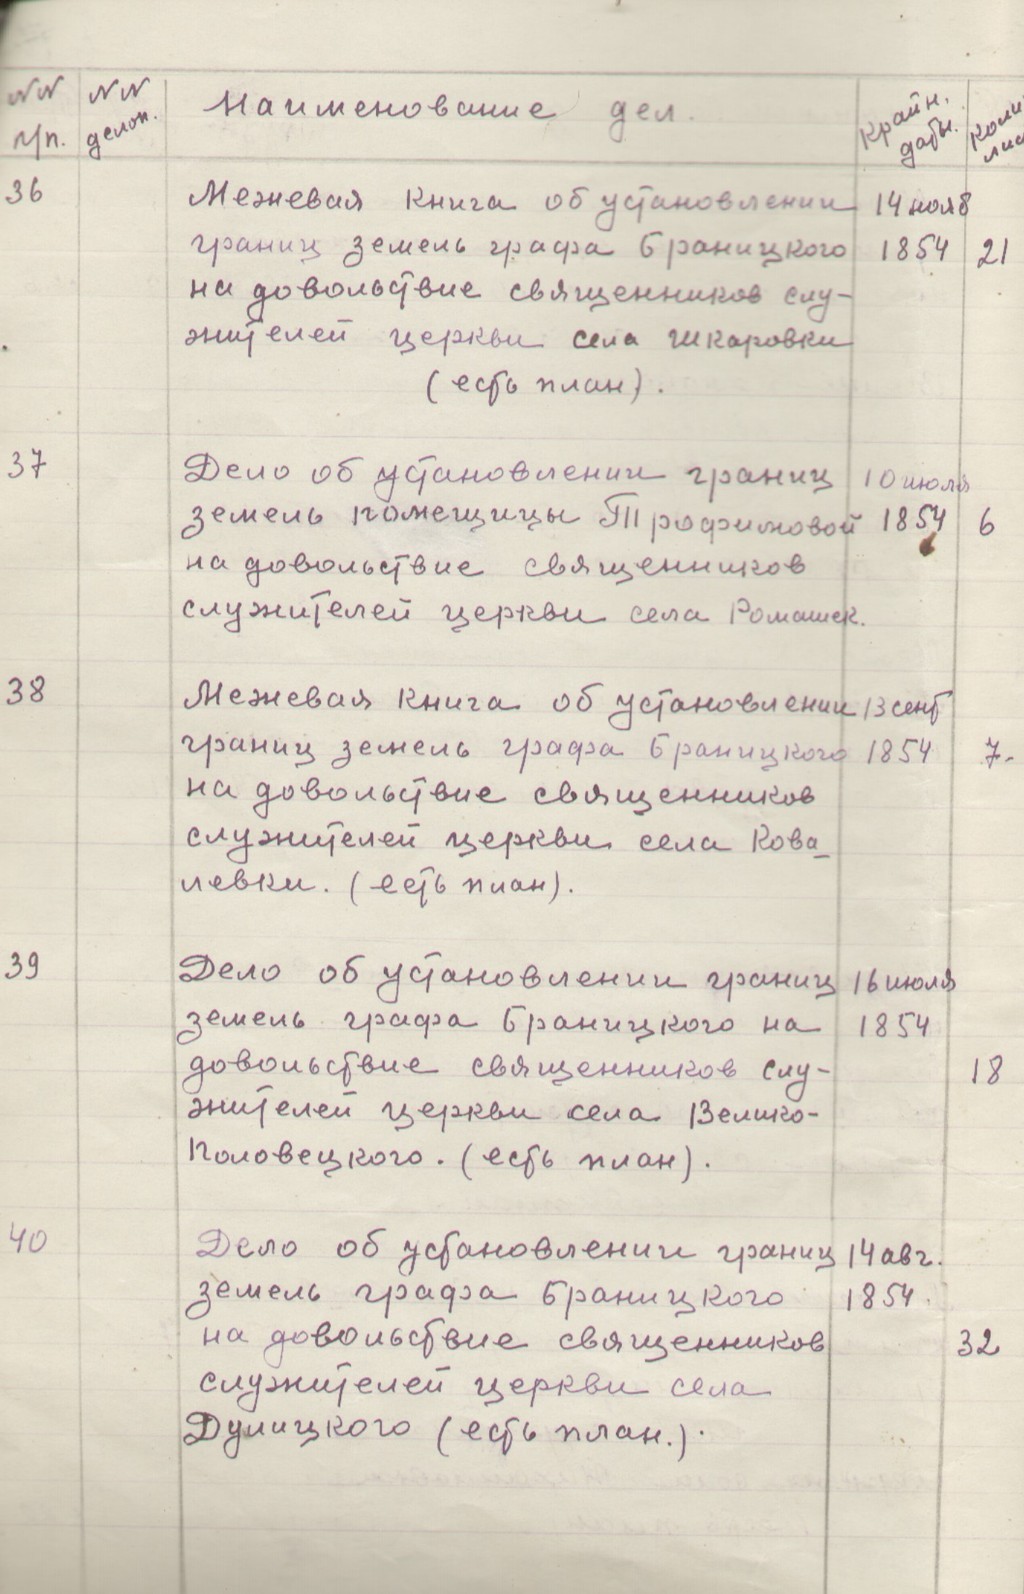 NN п/п. NN делоп. Наименование дел. Крайн. даты. Коли лис
36 Межевая книга об установлении 14 нояб
границ земель графа Браницкого 1854 21
на довольствие священников слу-
жителей церкви села Шкаровки
(есть план).
37 Дело об установлении границ 10 июля
земель помещицы Трофимовой 1854 6
на довольствие священников
служителей церкви села Ромашек.
38 Межевая книга об установлении 13 сент
границ земель графа Браницкого 1854 7-
на довольствие священников
служителей церкви села Кова-
левки. (есть план).
39 Дело об установлении границ 16 июля
земель графа Браницкого на 1854
довольствие священников слу- 18
жителей церкви села Велико-
Половецкого. (есть план).
40 Дело об установлении границ 14 авг.
земель графа Браницкого 1854.
на довольствие священников 32
служителей церкви села
Дулицкого (есть план.).